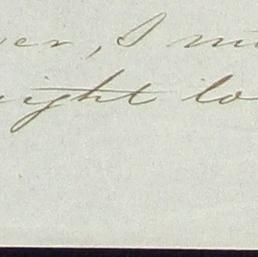 er, I m
ight lo